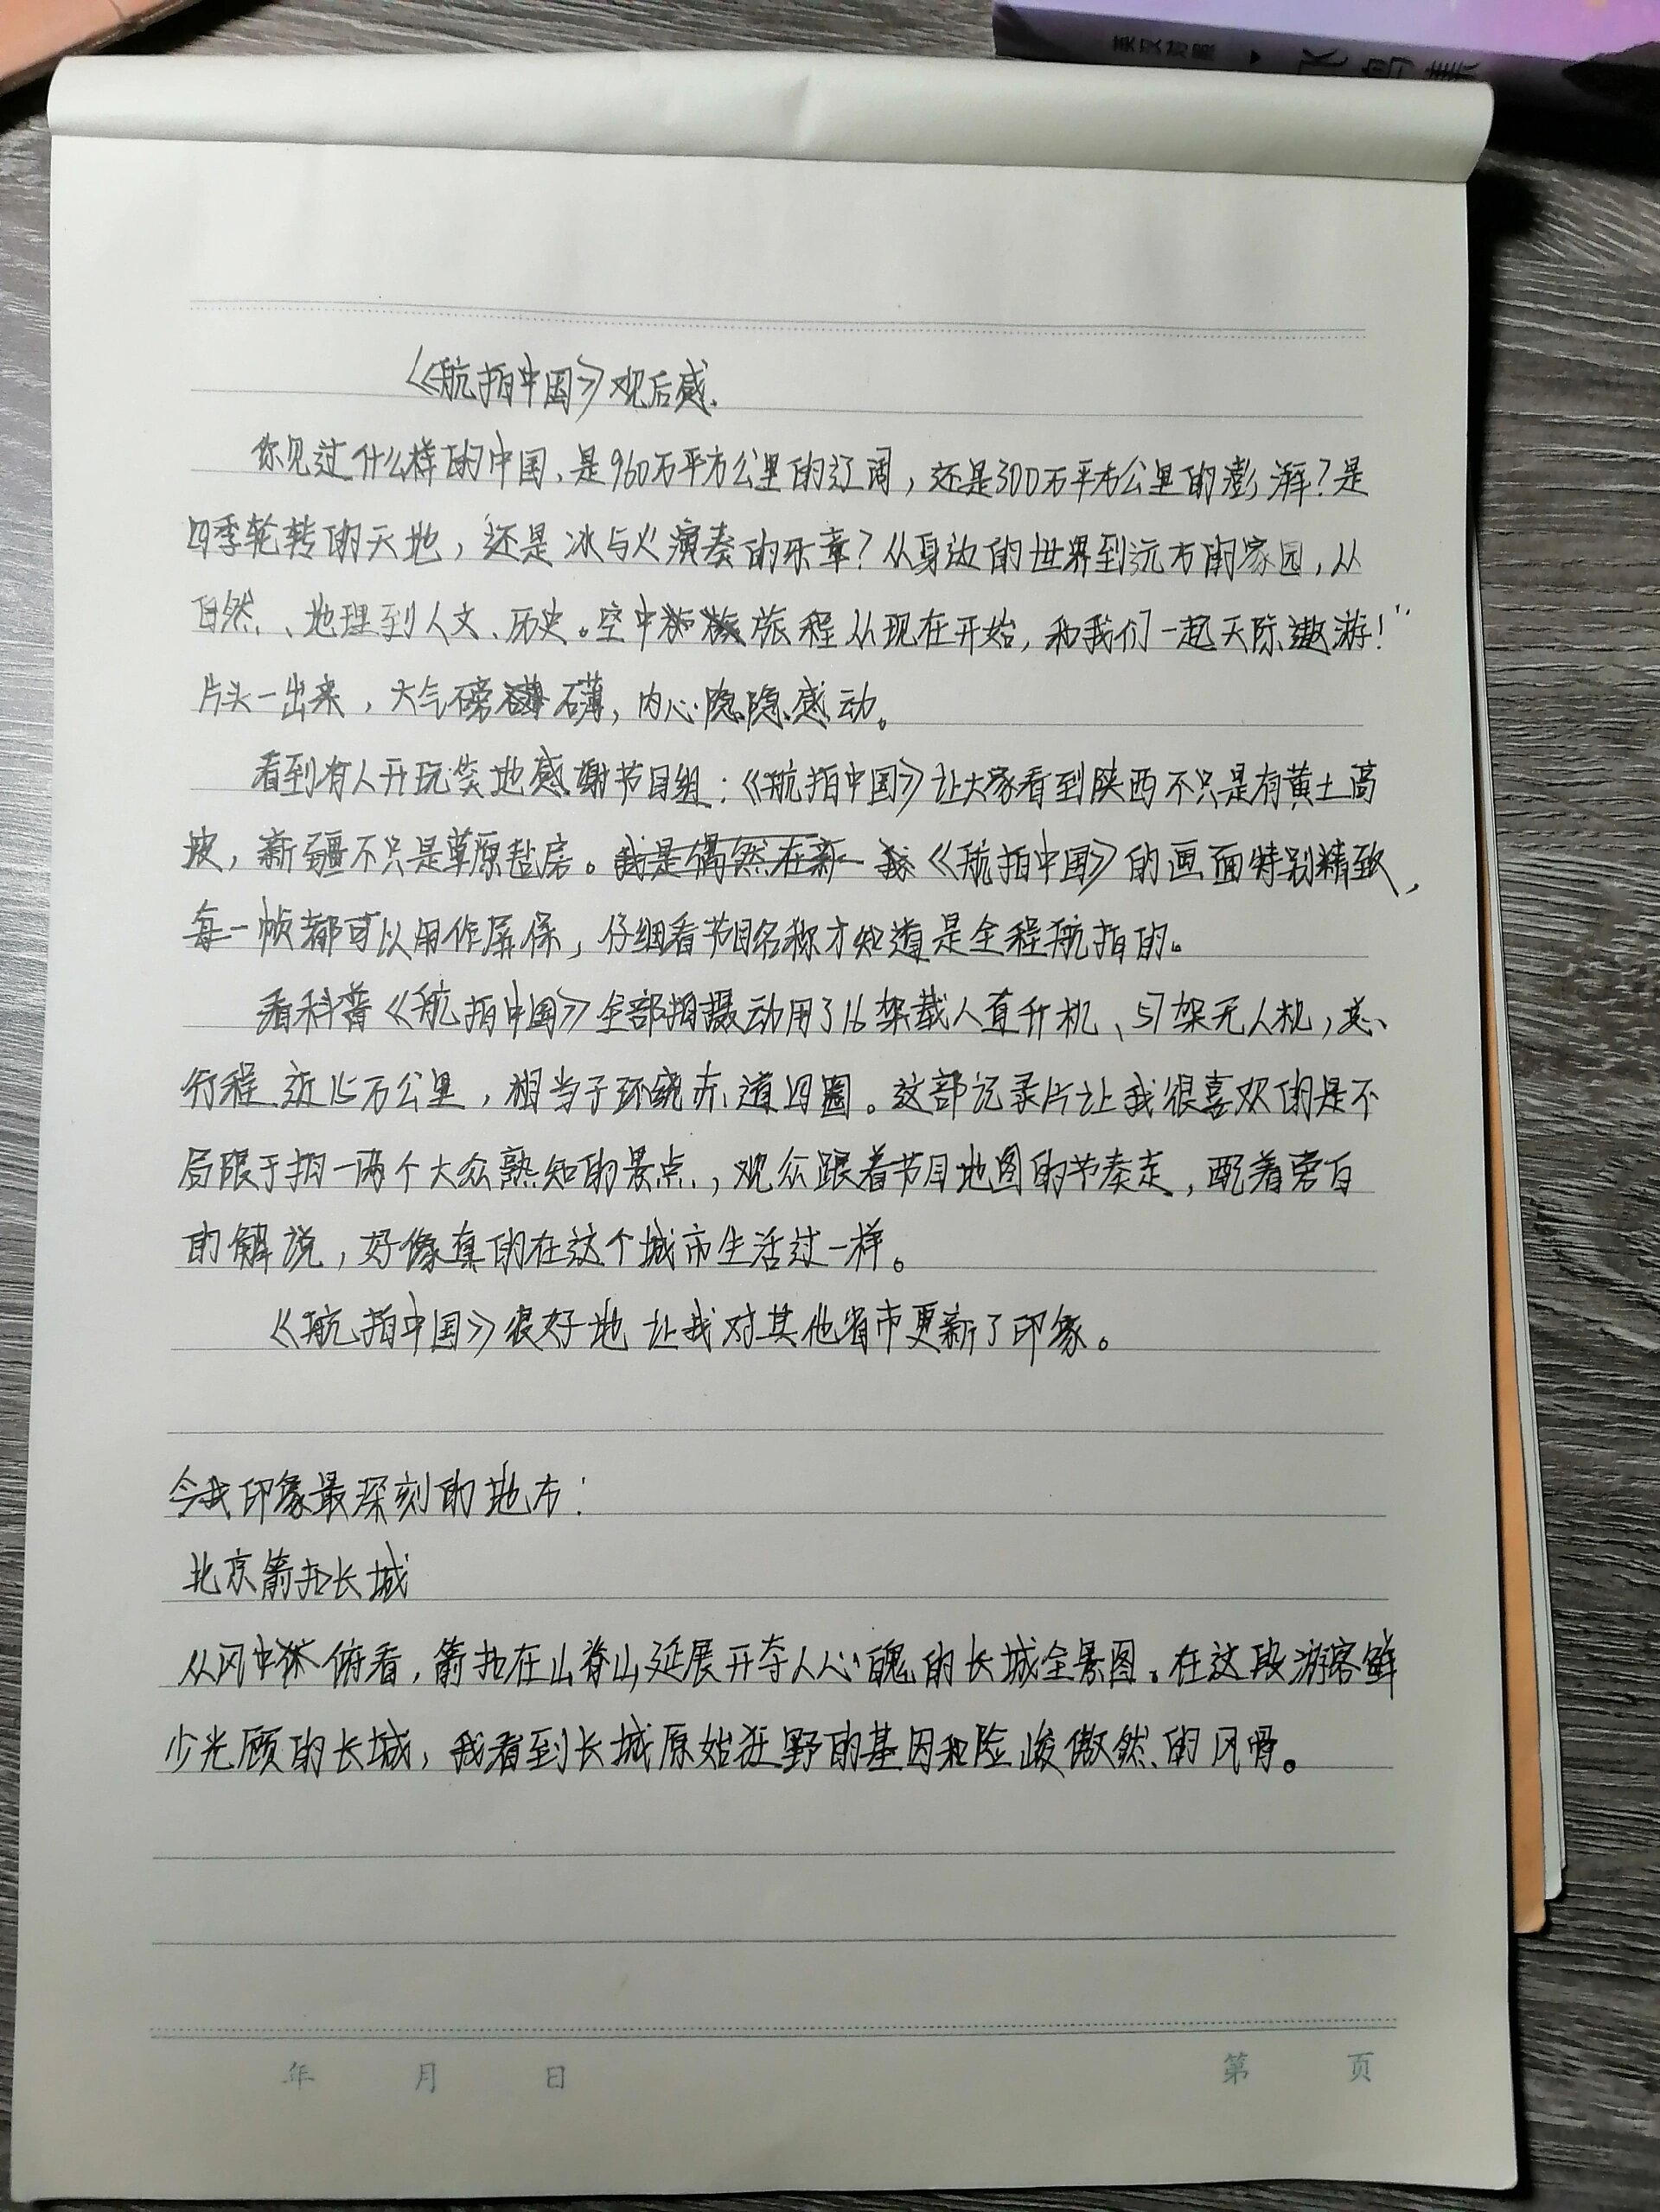 英汉对照
飞鸟集
《航拍中国》观后感.
你见过什么样的中国、是960万平方公里的辽阔，还是300万平方公里的澎湃？是
四季轮转的天地，还是冰与火演奏的乐章？从身边的世界到远方的家园，从
自然、地理到人文、历史。空中旅程从现在开始，和我们一起天际遨游！”
片头一出来，大气磅礴，内心隐隐感动。
看到有人开玩笑地感谢节目组：《航拍中国》让大家看到陕西不只是有黄土高
坡，新疆不只是草原毡房。我是偶然在新 我《航拍中国》的画面特别精致，
每一帧都可以用作屏保，仔细看节目名称才知道是全程航拍的。
看科普《航拍中国》全部拍摄动用了16架载人直升机、57架无人机，总
行程近15万公里，相当于环绕赤道四圈。这部记录片让我很喜欢的是不
局限于拍一两个大众熟知的景点，观众跟着节目地图的节奏走，配着旁白
的解说，好像真的在这个城市生活过一样。
《航拍中国》很好地让我对其他省市更新了印象。
令我印象最深刻的地方：
北京箭扣长城
从风中俯看，箭扣在山脊山延展开夺人心魄的长城全景图。在这段游客鲜
少光顾的长城，我看到长城原始狂野的基因和险峻傲然的风骨。
年 月 日 第 页